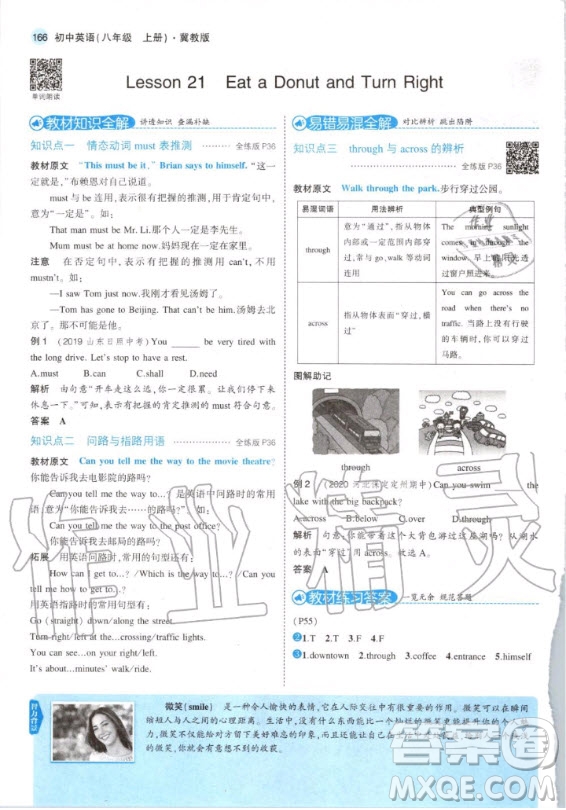 166 初中英语(八年级 上册)·冀教版
单词朗读
Lesson 21 Eat a Donut and Turn Right
教材知识全解 讲透知识 查漏补缺
知识点一 情态动词 must 表推测 全练版 P36
教材原文 “This must be it,” Brian says to himself. “这一
定就是,”布赖恩对自己说道。
must 与 be 连用,表示很有把握的推测,用于肯定句中,
意为“一定是”。如:
That man must be Mr. Li.那个人一定是李先生。
Mum must be at home now.妈妈现在一定在家里。
注意 在否定句中,表示有把握的推测用 can't,不用
mustn't。如:
—I saw Tom just now.我刚才看见汤姆了。
—Tom has gone to Beijing. That can't be him.汤姆去北
京了。那不可能是他。
例 1 (2019 山东日照中考) You ______ be very tired with
the long drive. Let's stop to have a rest.
A.must B.can C.need D.shall
解析 由句意“开车走这么远,你一定很累。让我们停下来
休息一下。”可知,表示很有把握的肯定的推测用 must 符合句意。
答案 A
知识点二 问路与指路用语 全练版 P36
教材原文 Can you tell me the way to the movie theatre?
你能告诉我去电影院的路吗?
Can you tell me the way to...? 是英语中问路时的常用
语,意为“你能告诉我去……的路吗?”如:
Can you tell me the way to the post office?
你能告诉我去邮局的路吗?
拓展 用英语问路时,常用的句型还有:
How can I get to...? / Which is the way to...?
Where is...? / Is there a... near here?
用英语指路时的常用句型有:
Go (straight) down/along this street.
Turn right/left at the...crossing/traffic lights.
You can see...on your right/left.
It's about...minutes' walk/ride.
易错易混全解 对比辨析 跳出陷阱
知识点三 through 与 across 的辨析
全练版 P36
教材原文 Walk through the park.步行穿过公园。
易混词语 用法辨析 典型例句
through 意为“通过”,指从物体内部或一定的空间内部穿过,常与 go、walk 等动词连用 The morning sunlight comes in through the window. 早上阳光透过窗户照进来。
across 指从物体表面“穿过,横过” You can go across the road when there's no traffic. 当路上没有行驶的车辆时,你们可以穿过马路。
图解助记
through across
例 2 (2020 河北保定定州期中) Can you swim ____ the
lake with the big backpack?
A.across B.below C.over D.through
解析 句意:你能带着这个大背包游过这座湖吗? 从湖水
的表面“穿过”用 across。故选 A。
答案 A
教材练习答案 一览无余 规范答题
(P55)
2 1.T 2.T 3.F 4.F
3 1.downtown 2.through 3.coffee 4.entrance 5.himself
微笑(smile) 是一种令人愉快的表情,它在人际交往中有很重要的作用。微笑可以在瞬间
缩短人与人之间的心理距离。
作业精灵
答案圈
MXQE.COM